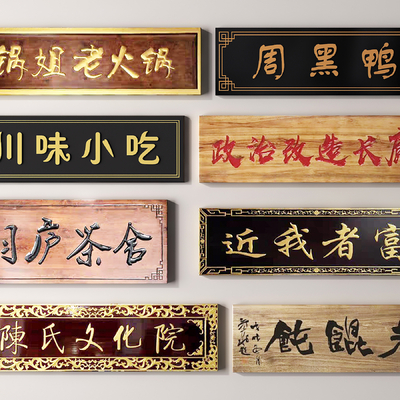 锅姐老火锅
周黑鸭
川味小吃
政治改造长廊
庐茶舍
近我者富
陳氏文化院
飩餛